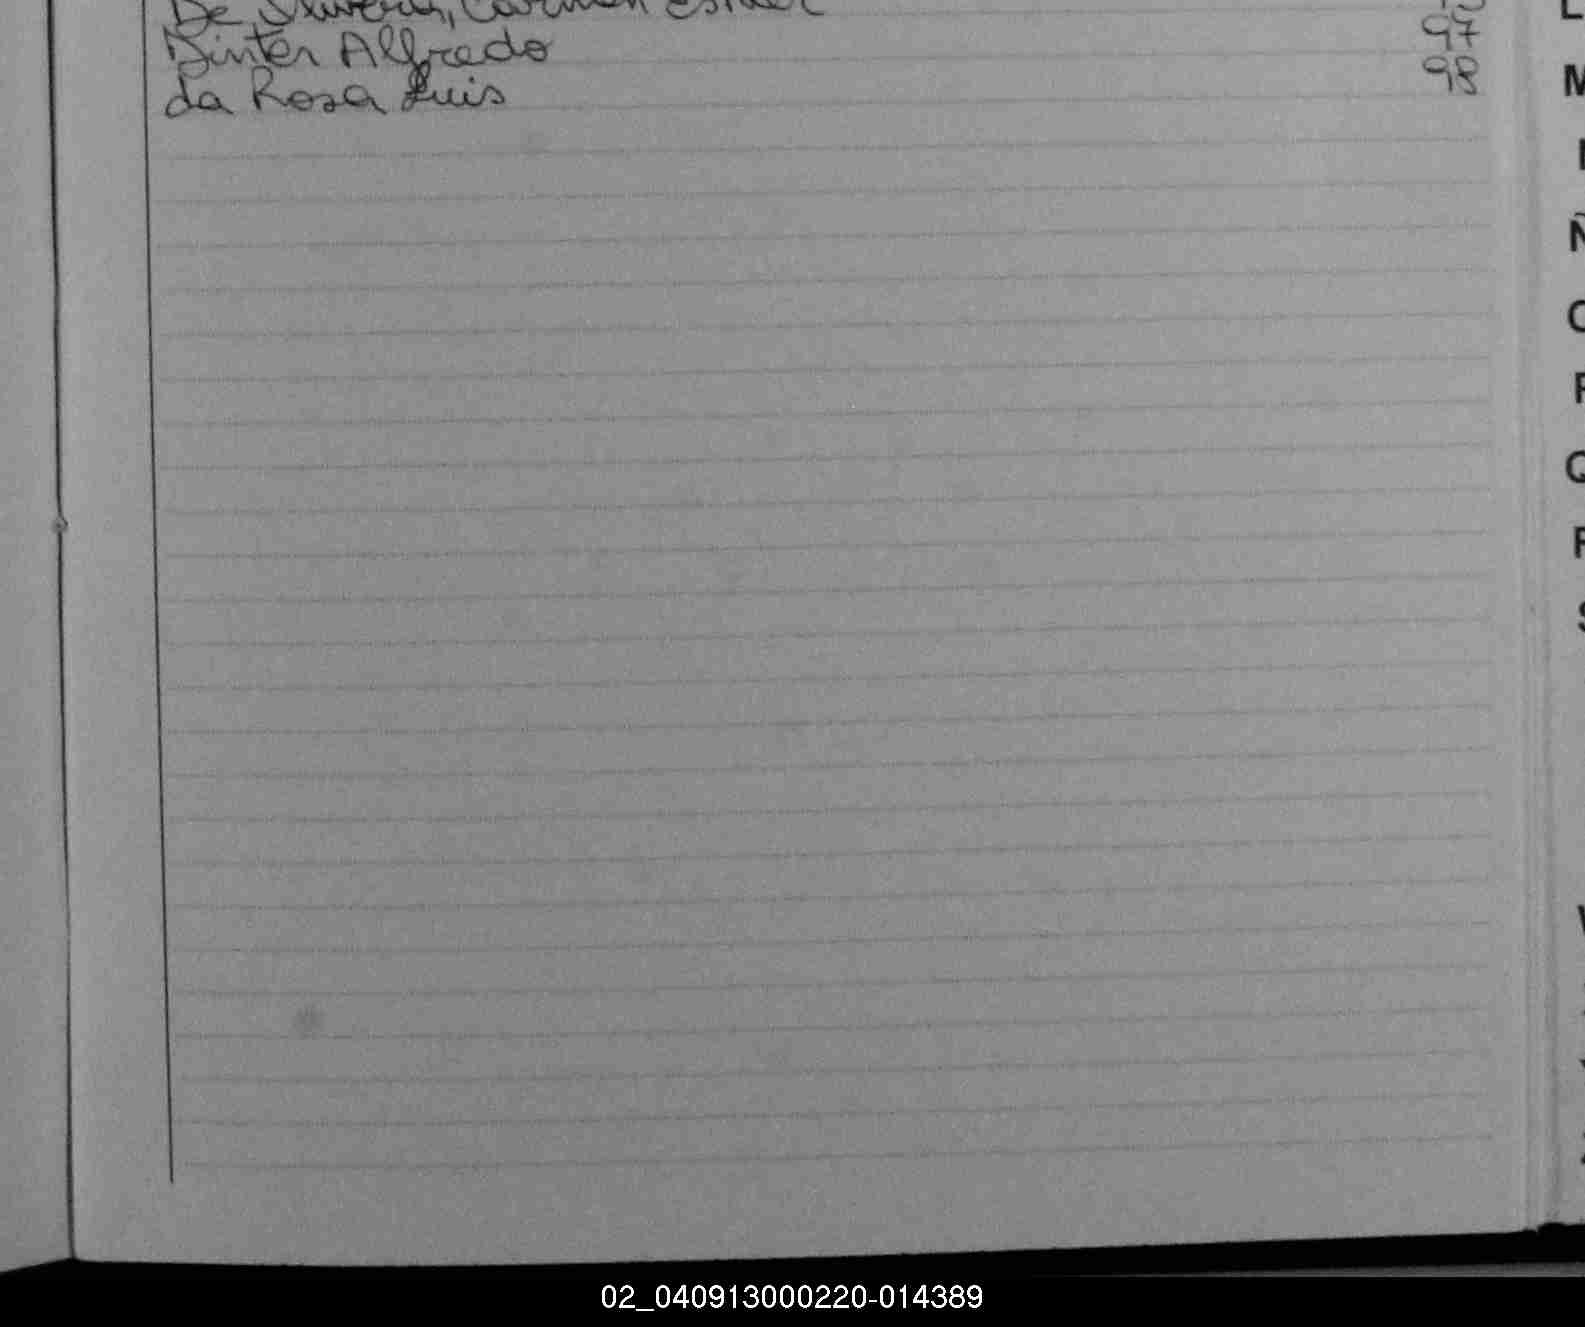 De Oliveira, Carmen Esther
Dinter Alfredo 97
da Rosa Luis 98
M
Ñ
Q
S
02_040913000220-014389